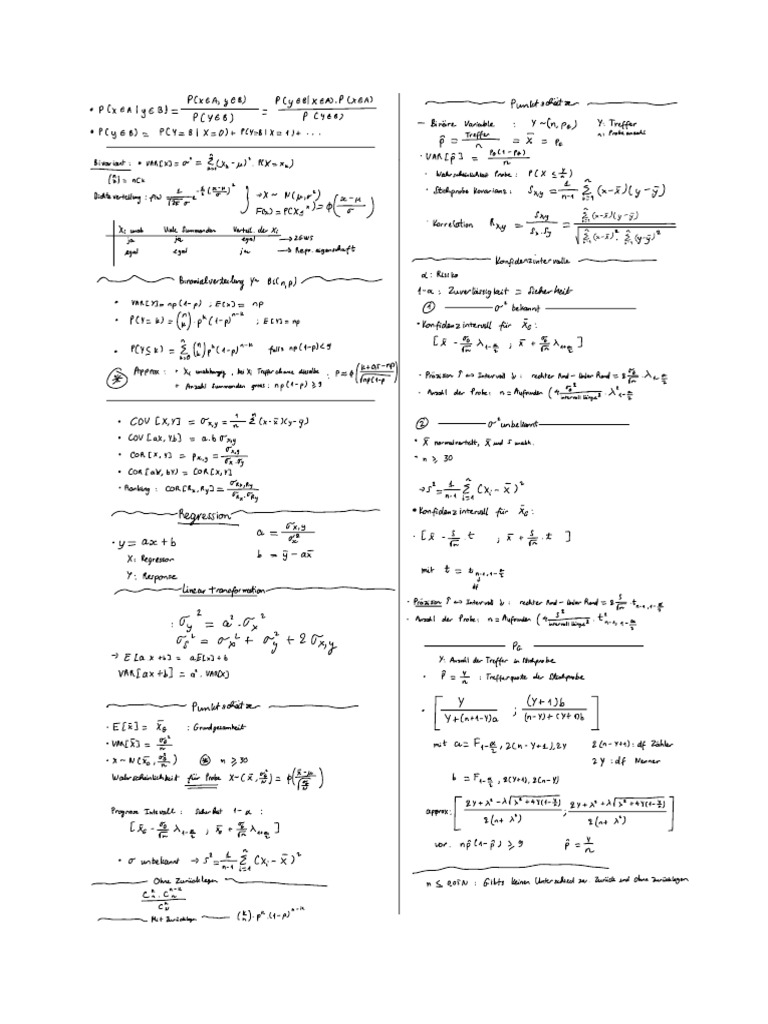 • P(x∈A | y∈B) = P(x∈A, y∈B) / P(y∈B) = P(y∈B | x∈A) . P(x∈A) / P(y∈B)
• P(y∈B) = P(Y=B | X=0) + P(Y=B | X=1) + ...
Bivariant : • VAR[X] = σ² = Σ (x_k - μ)² . P(X = x_k)
= nCk
Dichteverteilung : f(x) = 1/√(2π σ) e → X ~ N(μ, σ²)
= ϕ((x-μ)/σ)
X_i unab Viele Summanden Verteil. der X_i
ja ja egal → ZGWS
egal egal ja → Repr. eigenschaft
Binomialverteilung Y~ Bi(n,p)
• VAR[Y] = np(1-p) ; E[X] = np
• P(Y=k) = (n k) . p^k (1-p)^(n-k) ; E[Y] = np
• P(Y≤k) = Σ (n k) p^k (1-p)^(n-k) falls np(1-p) < 9
⊛ Approx : • X_i unabhängig, bei X_i Treffer ohne dieselbe : P = ϕ((k+0.5-np)/√(np(1-p)))
• Anzahl Summanden gross : np(1-p) ≥ 9
• COV [X,Y] = σ_x,y = 1/n Σ(x-x̄)(y-ȳ)
• COV[aX, Yb] = a.b σ_x,y
• COR[X, Y] = ρ_x,y = σ_x,y / σ_x . σ_y
• COR[aX, bY] = COR[X,Y]
• Ranking : COR[R_x, R_y] = σ_Rx,Ry / σ_Rx . σ_Ry
Regression
a = σ_x,y / σ_x²
• y = ax + b
b = ȳ - ax̄
X : Regressor
Y : Response
Linear transformation
: σ_y² = a² . σ_x²
σ_s² = σ_x² + σ_y² + 2σ_x,y
→ E[ax+b] = aE[x] + b
VAR[ax+b] = a² . VAR(X)
Punktschätzer
• E[x̄] = x̄_G : Grundgesamheit
• VAR[x̄] = σ_G²/n
• x ~ N(x̄_G, σ_G²/n) ⊛ n ≥ 30
Wahrscheinlichkeit für Probe X~(x̄, σ_G²/n) =
Prognose Intervall : Sicherheit 1-α :
[x̄_G - σ_G/√n λ_1-α/2 ; x̄_G + σ_G/√n λ_1-α/2]
• σ unbekannt → s² = 1/(n-1) Σ (x_i - x̄)²
Ohne Zurücklegen
Mit Zurücklegen . p^k . (1-p)^(n-k)
Punktschätzer
— Binäre Variable : Y ~(n, p_G) Y: Treffer
n: Probeanzahl
p̂ = Treffer/n = x̄ = p_G
• VAR[p̂] = p_G(1-p_G)/n
• Wahrscheinlichkeit Probe : P(X ≤ )
• Stichprobe Kovarianz : S_x,y = 1/(n-1) Σ (x-x̄)(y-ȳ)
• Korrelation R_x,y = S_x,y / S_x . S_y = Σ(x-x̄)(y-ȳ) / √(Σ(x-x̄)² . Σ(y-ȳ)²)
Konfidenzintervalle
α : Risiko
1-α : Zuverlässigkeit = Sicherheit
① σ² bekannt
• Konfidenzintervall für x̄_G :
[x̄ - σ_G/√n λ_1-α/2 ; x̄ + σ_G/√n λ_1-α/2]
• Präzision Intervall : rechter Rand - linker Rand = 2 σ_G/√n . λ_1-α/2
• Anzahl der Probe : n = Aufrunden (4 σ_G²/Intervalllänge² . λ²_1-α/2
② σ² unbekannt
• x̄ normalverteilt, x̄ und s unab.
• n ≥ 30
→ s² = 1/(n-1) Σ (x_i - x̄)²
• Konfidenzintervall für x̄_G :
• [x̄ - s/√n t ; x̄ + s/√n . t ]
mit t = t_n-1, 1-α/2
df
• Präzision Intervall : rechter Rand - linker Rand = 2 s/√n . t_n-1, 1-α/2
• Anzahl der Probe : n = Aufrunden (4 s²/Intervalllänge² . t²_n-1, 1-α/2
P_G
Y: Anzahl der Treffer in Stichprobe
• p̂ = Y/n : Trefferquote der Stichprobe
• [ Y / Y+(n+1-Y)a ; (Y+1)b / (n-Y)+(Y+1)b ]
mit a = F_1-α/2, 2(n-Y+1), 2Y 2(n-Y+1) : df Zähler
2Y : df Nenner
b = F_1-α/2, 2(Y+1), 2(n-Y)
approx :
vor. np̂(1-p̂) ≥ 9 p̂ = Y/n
n ≤ 0.05N : Gibts keinen Unterschied zw. Zurück und ohne zurücklegen